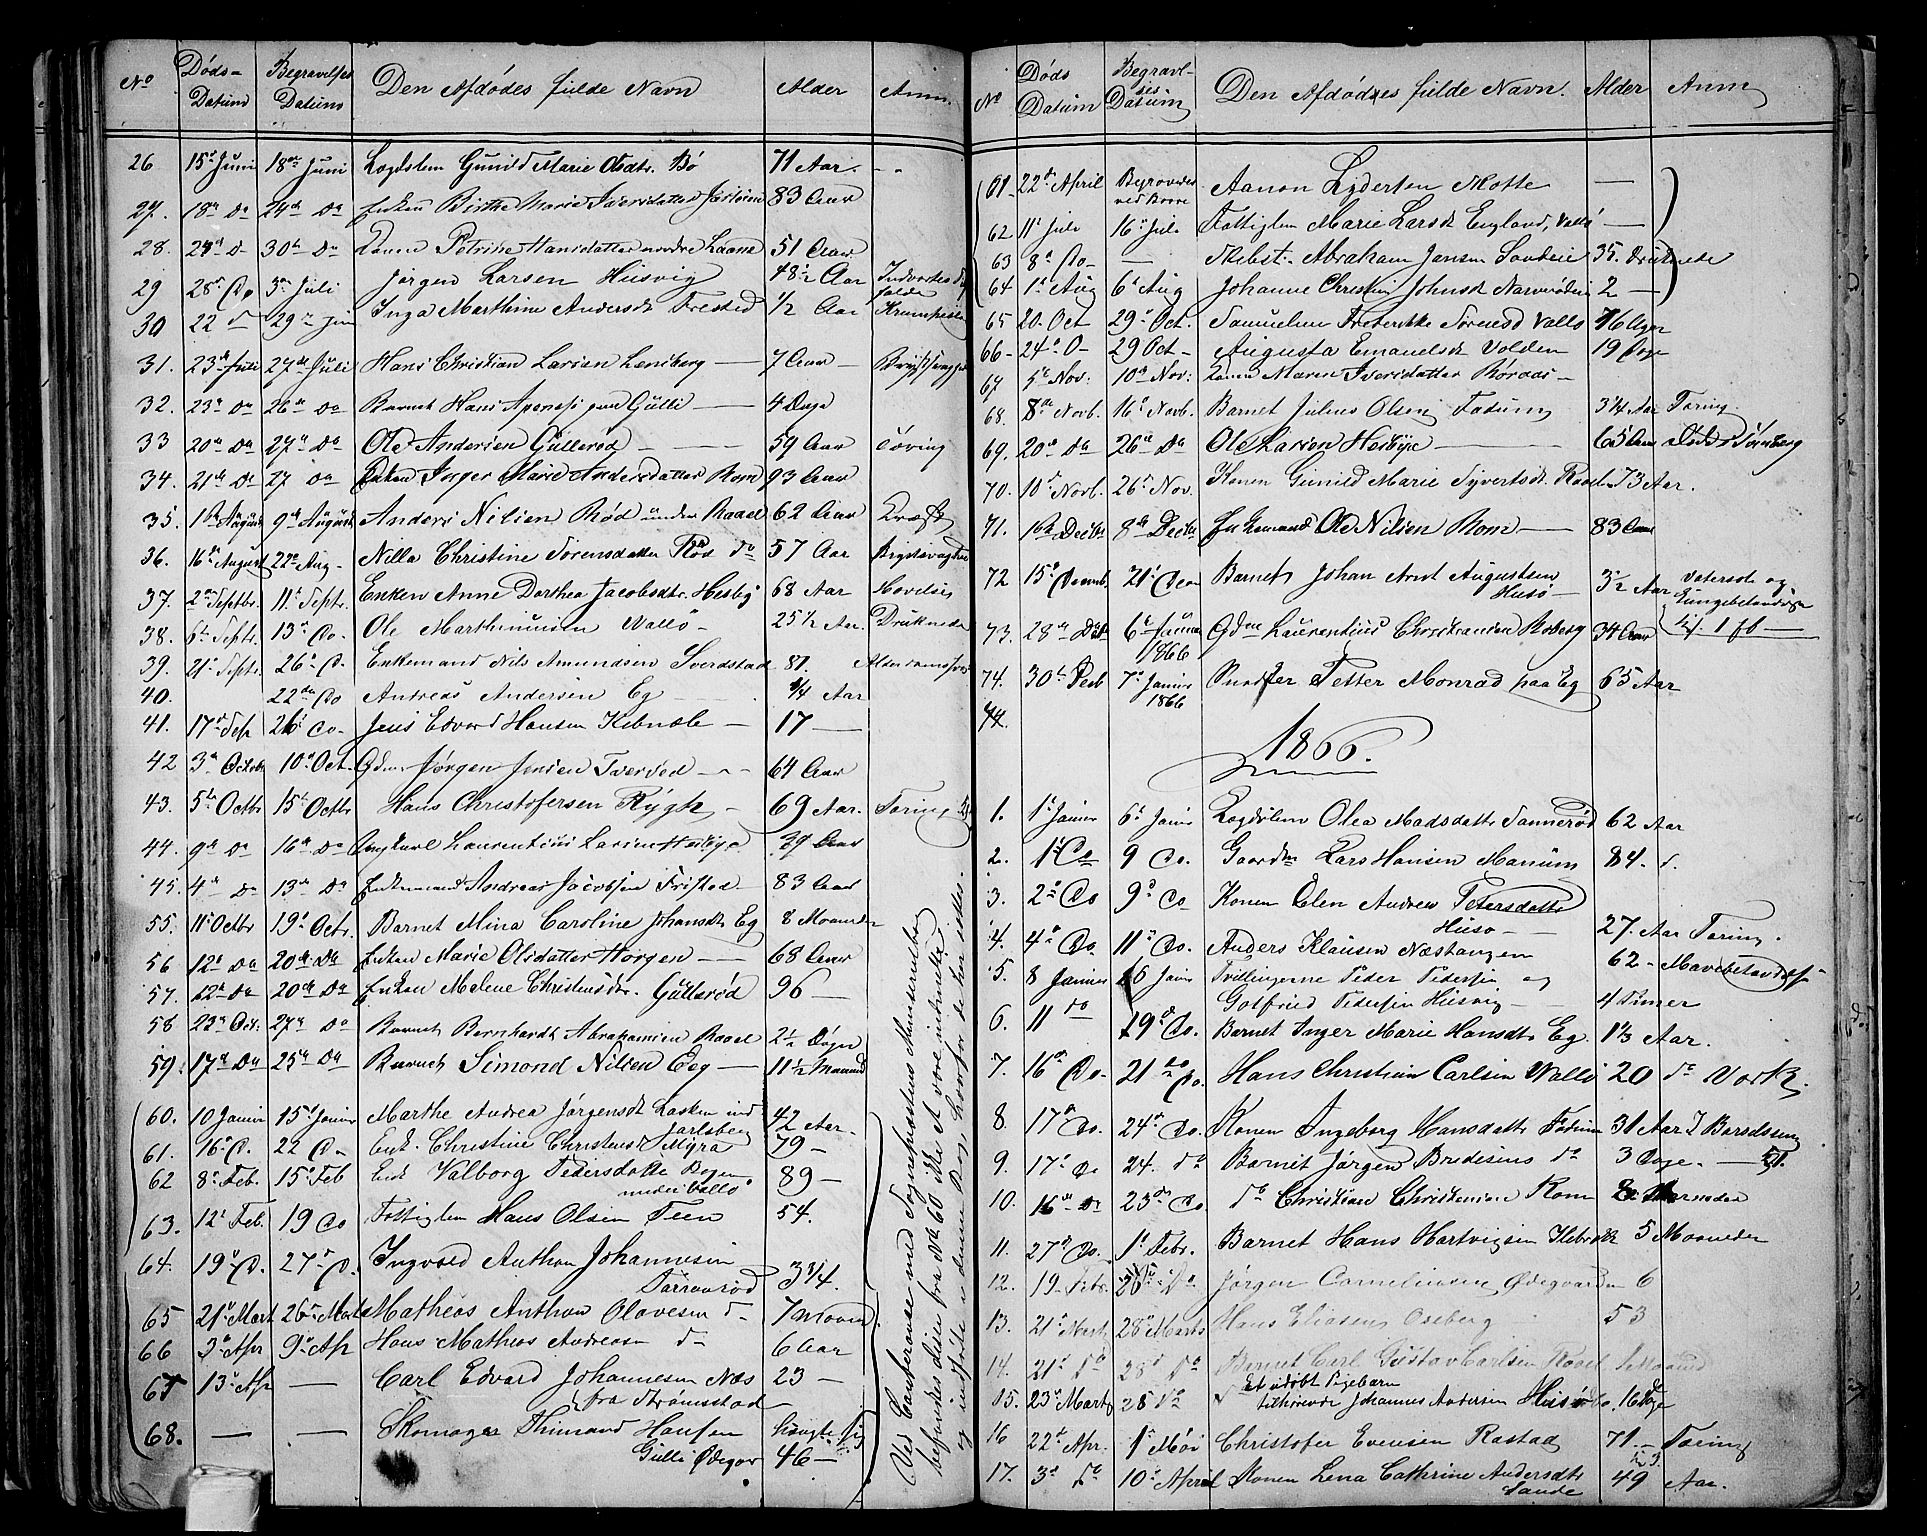 No Döds- Datum Begravelses Datums Den Afdödes fulde Navn Alder Anm.
26 15d Juni 18de Juni Logdslem Gunild Marie Olsdtr. Bö 71 Aar. - -
27. 18de Do 24de Do Enken Birthe Marie Iversdatter Jarlsöen 83 Aar
28. 24d D- 30te Do Konen Petrine Hansdatter nordre Laane 51 Aar
29 28d Do 3de Juli Jörgen Larsen Husvig 48 1/2 Aar
30 22 d 29de Juni Inga Marthine Andersdt Trested 1/2 Aar
31. 23de Juli 27de Juli Hans Christian Larsen Lensberg — 7 Aar —
32. 23de Do 26de Do Barnet Hans Apenesi paa Gulli — 4 Dage
33 20de Do 27de Do Ole Andersen Gulleröd — 59 Aar Töring
34. 21de Do 27 Do Enken Inger Marie Andersdatter Rom 93 Aar
35. 1ste August 9de August Anders Nilsen Röd under Raael 62 Aar Kræft
36. 16de August 22de Aug- Nilla Christine Sörensdatter Röd do 57 Aar Brystsvaghed
37. 2de Septbr. 11te Septr. Enken Anne Dorthea Jacobsdtr. Hesby 68 Aar Hovelsis
38. 6te Septr. 13de Do. Ole Marthinusen Vallö - 25 1/2 Aar. Druknede
39. 21de Septr. 26de D. Enkemand Nils Amundsen Sverdstad 87. Alderdomssvag
40. 22de Do Andreas Andersen Eg — 3/4 Aar
41. 17de Sep 26de Do- Jens Edvard Hansen Kebnæle — 17 —
42 3de Octob 10de Oct. Gdm. Jörgen Jensen Tveröd - - - 64 Aar
43. 5te Octbr 15de Octbr Hans Christofersen Rygh - 69 Aar. Toring
44. 9de Do 16de Do Ungkarl Laurentius Larsen Hesbye 39 Aar
45. 4de Do 13de Do Enkemand Andreas Jacobsen Fristad — 83 Aar
55. 11te Octbr 19de Octr. Barnet Mina Caroline Johansdt Eg 8 Maaneder
56 12te Do 20de Do Enken Marie Olsdatter Horgen — 68 Aar
57. 12te Do 20de Do Enken Malene Christensdr. Gulleröd 96 —
58 23de Oct. 27de Do Barnet Bernhardt Abrahamsen Raael 2 1/2 Dögn
59. 17de Do 25de Do Barnet Simond Nilsen Eeg — 11 1/2 Maaned
60. 10 Januar 15de Januar Marthe Andrea Jörgensdt Lasken ind
Jarlsberg 42 Aar.
61. 16de D. 22 D. Enk. Christine Christensdt Myra 79 —
62 8de Feb. 15de Feb Enk Valborg Pedersdatte Bogen
under Vallö 89 —
63. 12te Feb. 19 Do Fattiglem Hans Olsen Teen 54.
64. 19de D. 27de D. Ingvald Anthon Johannesen
Tarraröd 3 3/4.
65 21de Mart 26de Marts Mathias Anthon Olavesen d - 7 Maaned
66 3de Apr 9de Ap Hans Mathias Andreasen d - 6 Aar
67 13de Apr — Carl Edvard Johannesen Næs
fra Strömsstad 23 —
68. — — Skomager Thimand Hansen
Gulli Ödegar hængte sig 46 —
Ved Conferanse med Sogneprestens Ministerialbog
befindes disse fra No 60 ikke at være indrettede
og indförte i denne Bog, hvorfor de her sidst.
No Döds Datum Begravelses Datum Den Afdödes fulde Navn. Alder Anm
61- 22de April Begravedes ved Borre Aanon Lydersen Motte —
62 11te Juli 16de Juli Fattiglem Marie Larsdt England, Vallö —
63 8de Do- — Abraham Jansen 35. Druknede
64 1ste Aug 6te Aug Johanne Christine Johnsdt Narveröden 2 —
65 20- Oct 29de Oct. Samueline Frederikke Sörensd Vallö 16 Uger
66- 24de O- 29 Oct- Augusta Emanuelsdt Volden 19 Dage
67 5te Nov. 10de Nov: Konen Maren Iversdatter Röraas —
68. 8de Novb. 16de Novb. Barnet Julius Olsen Fodum 3/4 Aar Toring
69. 20de Do 26de Do Ole Larsen Hesbye — 65 Aar Död i Tönsberg
70. 10de Novb. 26de Nov. Konen Gunild Marie Syvertsdt. Raael 73 Aar.
71. 1ste Decbr 8de Decbr Enkemand Ole Nilsen Rom — 83 Aar
72 15de Decemb. 21de Decm Barnet Johan Arnt Augustsen
Husö — 3 1/2 Aar Vatersot og Lungebetændelse
73. 28de Do 6te Januar 1866 Gdm Laurentius Christiansen Roberg 34 Aar
74. 30te Decb 7de Januar 1866 Petter Monrad paa Eg 65 Aar
74.
1866.
1. 1ste Januar 6te Januar Logdslem Olea Madsdatter Sanneröd 62 Aar
2. 1ste Do 9 Do. Gaardm Lars Hansen Manum 84. d.
3. 2de Do 9de Do- Konen Elen Andrea Petersdatter
Husö — 27. Aar Toring.
4. 4de Do 11te Do. Anders Klausen Næstangen 62 - Mavebetændelse
5. 8 Januar 16 Janu Tvillingerne Peder Pedersen og
Gotfried Pedersen Husvig — 4 Timer
6. 11 do 19de Do. Barnet Inger Marie Hansdt Eg 1 1/3 Aar.
7. 16de Do. 21de Do. Hans Christian Carlsen Vallö 20 do Værk.
8. 17de Do. 24de Do. Konen Ingeborg Hansdatter Fodum 31 Aar I Barselseng
9. 17de Do 24. do Barnet Jörgen Bredesens do 3 Dage. —
10. 16de Do 23de Do. do Christian Christensen Rom Maaneder
11. 27de Do. 1ste Febr. Barnet Hans Hartvigsen Ilebrekk 5 Maaneder
12. 19- Febr. 26de Do Jörgen Corneliusen Ödegaarden 6
13. 21de Marts 28de Marts Hans Eliasen Oseberg 53
14. 21d Do 28d Do Barnet Carl Gustav Carlsen Raael 1 Maaned
15. 23de Marts 28 Do Et udöbt Pigebarn
tilhörende Johannes Andersen Husö do. 16 Dage
16 22de Apr. 1ste Mai Christofer Evensen Rastad 71. - Toring
17. 3d do 10de April Konen Lena Cathrine Andersdtr
Sande 49 Aar.